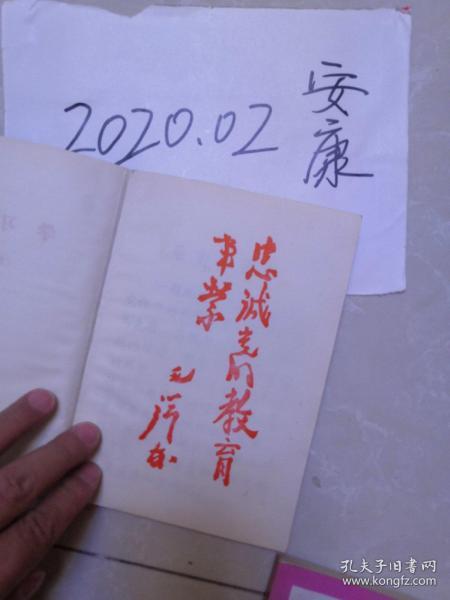 2020.02
安康
忠诚党的教育
事业
毛泽东
学习
孔夫子旧书网
www.kongfz.com